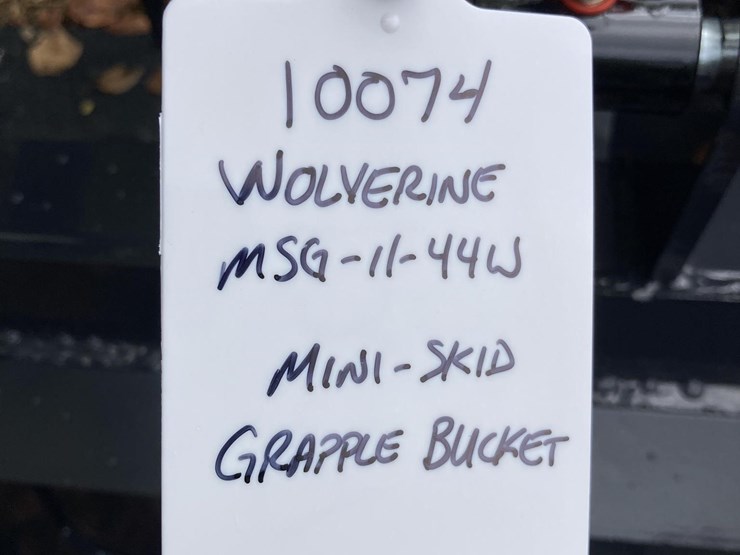 10074
WOLVERINE
MSG-11-44W
MINI-SKID
GRAPPLE BUCKET